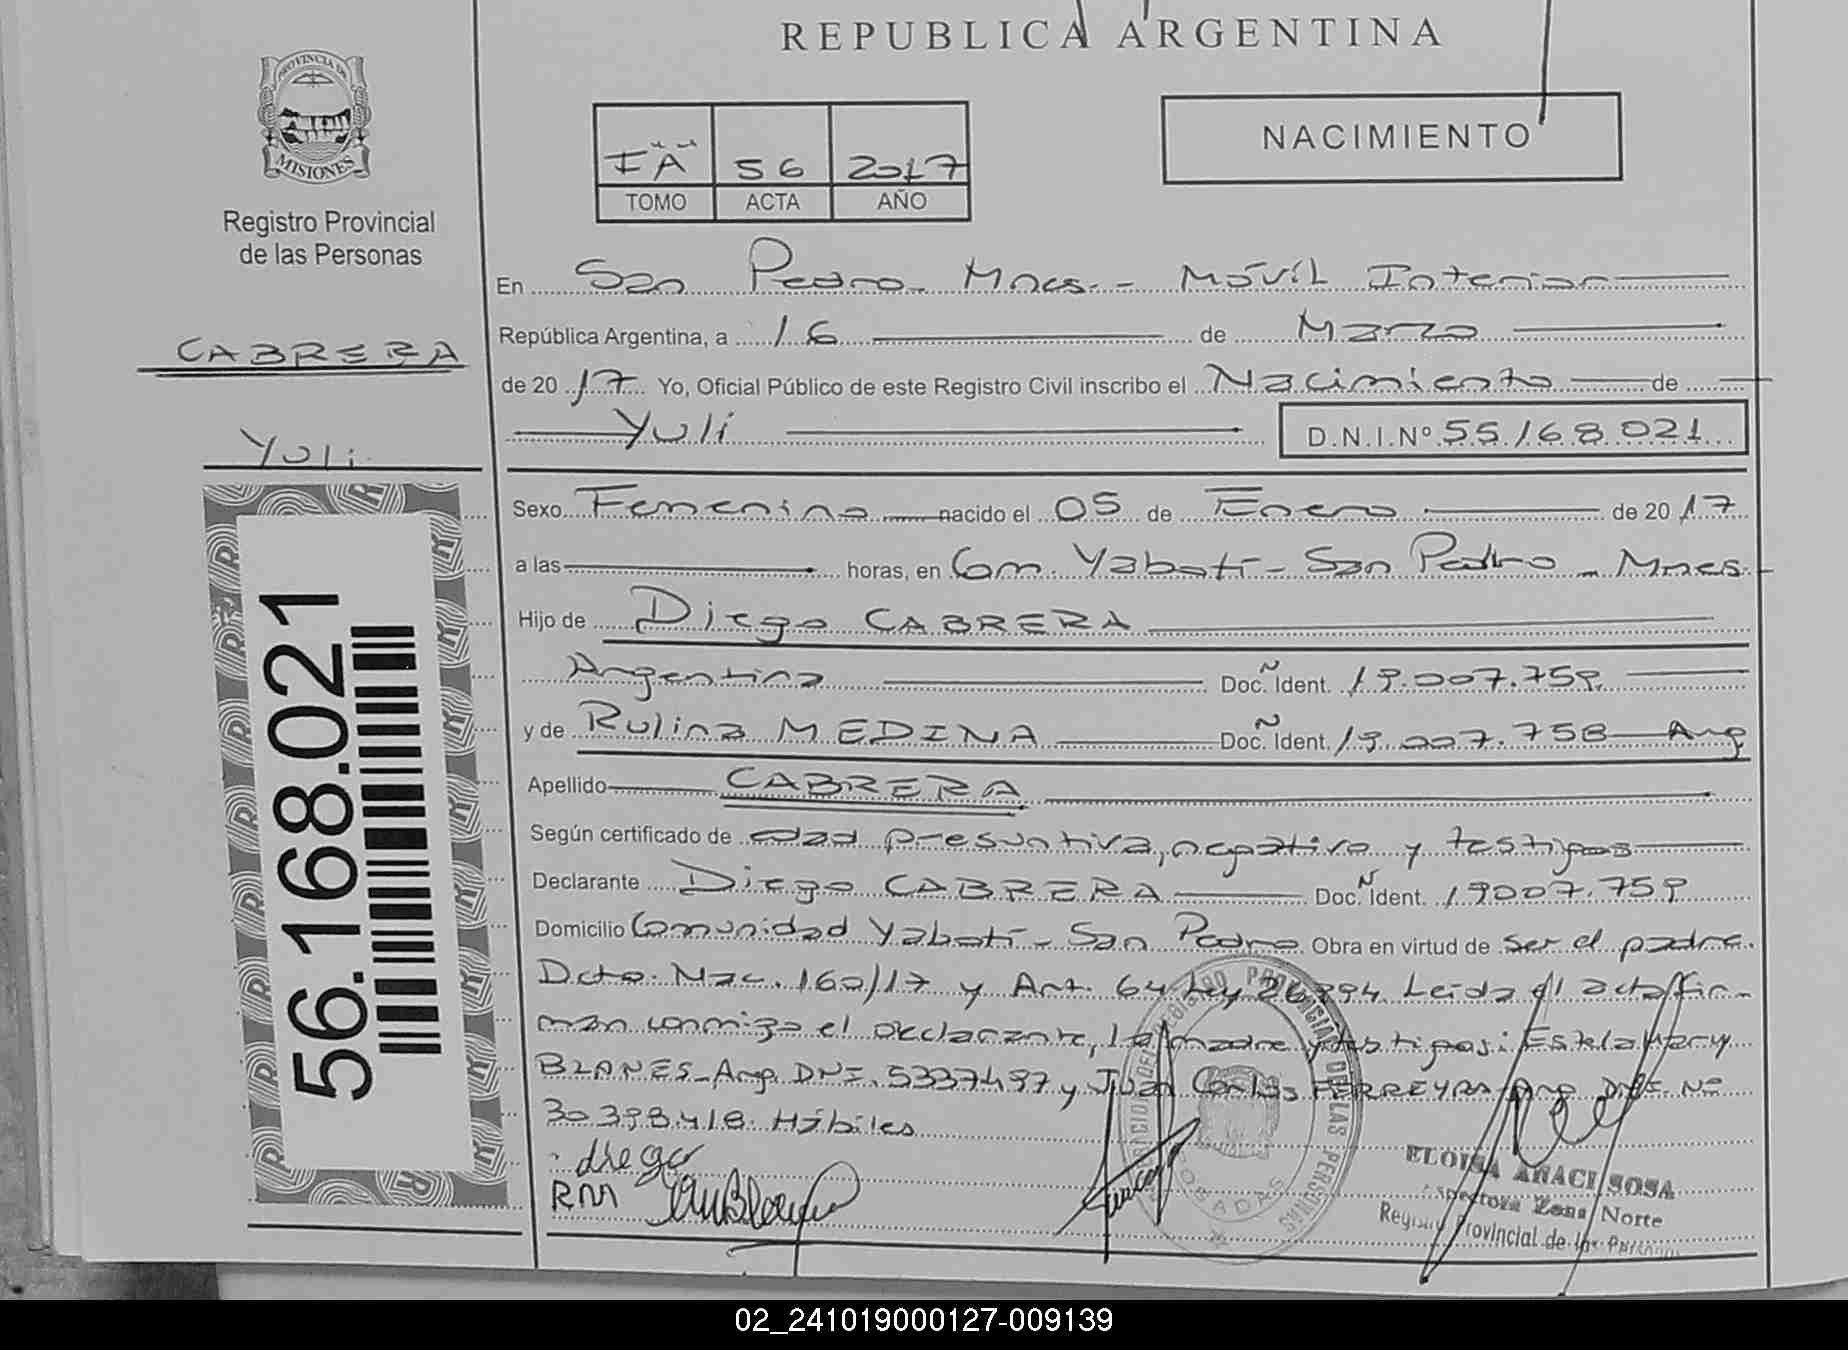 REPUBLICA ARGENTINA
PROVINCIA DE
MISIONES
Registro Provincial
de las Personas
CABRERA
Yuli
56.168.021
IªAª 56 2017
TOMO ACTA AÑO
NACIMIENTO
En San Pedro - Mnes. - Móvil Interior
República Argentina, a 16 de Marzo
de 2017 Yo, Oficial Público de este Registro Civil inscribo el Nacimiento de
Yuli D.N.I.Nº 55168021
Sexo Femenino nacido el 05 de Enero de 2017
a las horas, en Com. Yabotí - San Pedro - Mnes.
Hijo de Diego CABRERA
Argentina Doc. Ident. 19.007.759
y de Rulina MEDINA Doc. Ident. 19.007.758 Arg
Apellido CABRERA
Según certificado de edad presuntiva, negativo y testigos
Declarante Diego CABRERA Doc. Ident. 19007.759
Domicilio Comunidad Yabotí - San Pedro Obra en virtud de ser el padre.
Dcto. Nac. 160/17 y Art. 64 Ley 26994 Leida el acta fir-
man conmigo el declarante, la madre y testigos: Estela Mary
BLANES - Arg. DNI. 5337497 y Juan Carlos FERREYRA - Arg. DNI Nº
30.398.418. Hábiles
diego
RM
ELOISA ANACI SOSA
Inspectora Zona Norte
Registro Provincial de las Personas
02_241019000127-009139